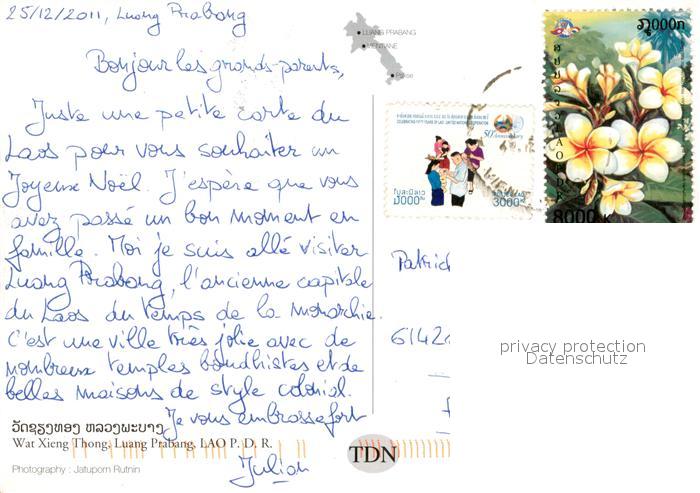 25/12/2011, Luang Prabang
Bonjour les grands-parents,
Juste une petite carte du
Laos pour vous souhaiter un
Joyeux Noël. J'espère que vous
avez passé un bon moment en
famille. Moi je suis allé visiter
Luang Prabang, l'ancienne capitale
du Laos du temps de la monarchie.
C'est une ville très jolie avec de
nombreux temples bouddhistes et de
belles maisons de style colonial.
Je vous embrasse fort
Julian
ວັດຊຽງທອງ ຫລວງພະບາງ
Wat Xieng Thong, Luang Prabang, LAO P. D. R.
Photography : Jatuporn Rutnin
LUANG PRABANG
VIENTIANE
Pakse
50th Anniversary
3000
8000 K
Patric
6142
privacy protection
Datenschutz
TDN